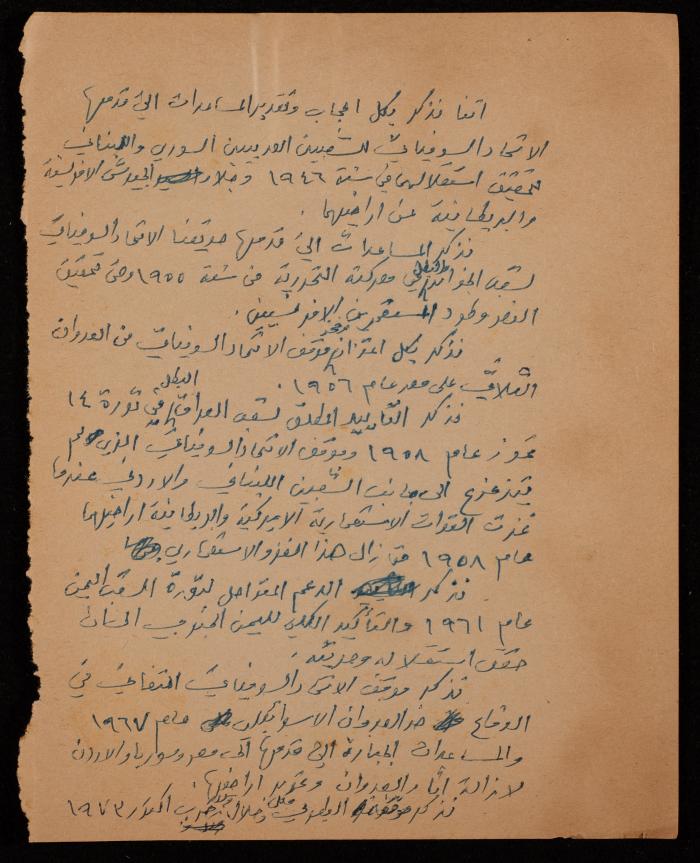 اننا نذكر بكل اعجاب وتقدير المساعدات التي قدمها
الاتحاد السوفياتي للشعبين العربيين السوري واللبناني
لتحقيق استقلالهما في سنة ١٩٤٦ وجلاء الجيوش الافرنسية
والبريطانية عن اراضيهما .
نذكر المساعدات التي قدمها صديقنا الاتحاد السوفياتي
لشعب الجزائر البطل في معركته التحررية من سنة ١٩٥٥ وحتى تحقيق
النصر وطرد المستعمرين الافرنسيين .
نذكر بكل اعتزاز وفخر موقف الاتحاد السوفياتي من العدوان
الثلاثي على مصر عام ١٩٥٦ .
نذكر التأييد المطلق لشعب العراق البطل في ثورة ١٤
تموز عام ١٩٥٨ وموقف الاتحاد السوفياتي الذي لم
يتزعزع الى جانب الشعبين اللبناني والاردني عندما
غزت القوات الاستعمارية الاميركية والبريطانية اراضيهما
عام ١٩٥٨ حتى زال هذا الغزو الاستعماري
نذكر الدعم المتواصل لثورة اليمن
عام ١٩٦١ والتأكيد الكلي لليمن الجنوبي الى ان
حقق استقلاله وحريته .
نذكر موقف الاتحاد السوفياتي المتفاني في
الدفاع ضد العدوان الاسرائيلي عام ١٩٦٧
والمساعدات الجبارة التي قدمها الى مصر وسوريا والاردن
لازالة اثار العدوان وتحرير اراضيها .
نذكر موقفه البطولي خلال حرب اكتوبر ١٩٧٣